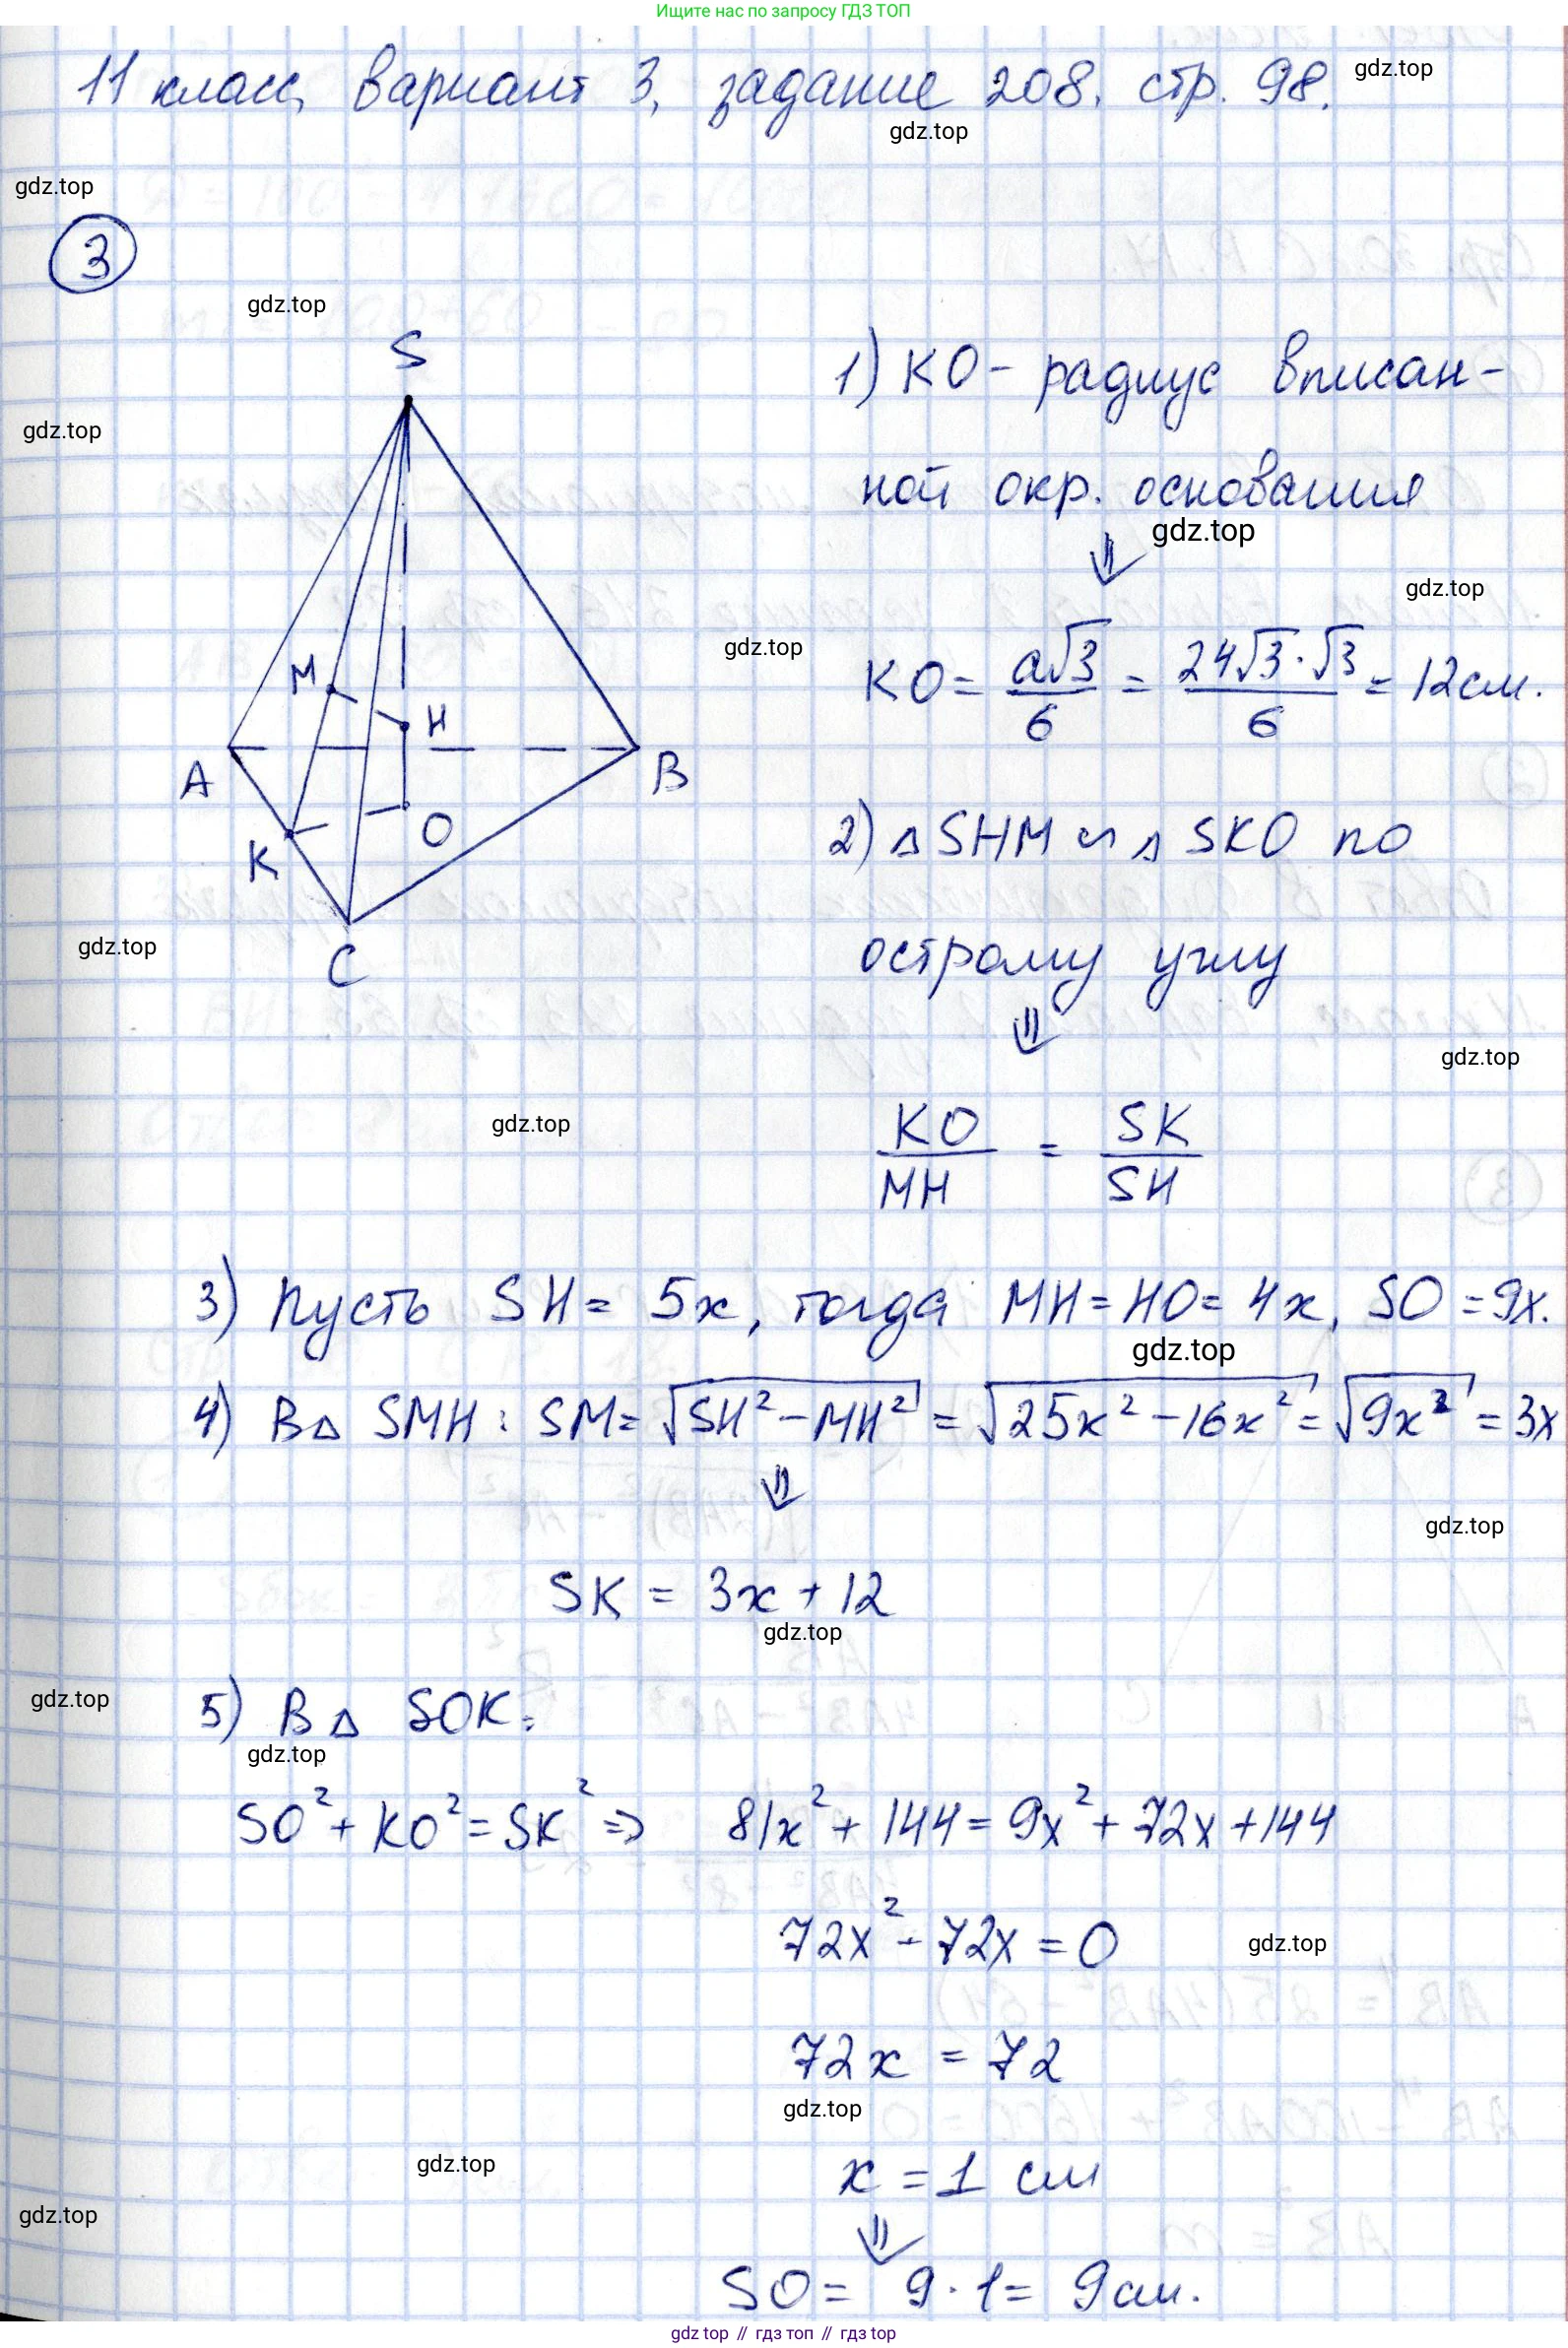 Ищите нас по запросу ГДЗ ТОП
11 класс, вариант 3, задание 208, стр. 98.
gdz.top
gdz.top
gdz.top
3
gdz.top
S
1) KO - радиус вписан-
gdz.top
ной окр. основания
gdz.top
⇓
gdz.top
gdz.top
KO = a√3/6 = 24√3·√3/6 = 12 см.
M
H
A
B
O
K
2) ∆ SHM ∽ ∆ SKO по
gdz.top
C
острому углу
⇓
gdz.top
gdz.top
KO/MH = SK/SH
3) Пусть SH = 5x, тогда MH = HO = 4x, SO = 9x.
gdz.top
4) В ∆ SMH: SM = √SH² - MH² = √25x² - 16x² = √9x² = 3x
⇓
gdz.top
SK = 3x + 12
gdz.top
gdz.top
5) В ∆ SOK:
gdz.top
SO² + KO² = SK² ⇒ 81x² + 144 = 9x² + 72x + 144
72x² - 72x = 0
gdz.top
72x = 72
gdz.top
gdz.top
x = 1 см
gdz.top
⇓
SO = 9 · 1 = 9 см.
gdz top // гдз топ // гдз top